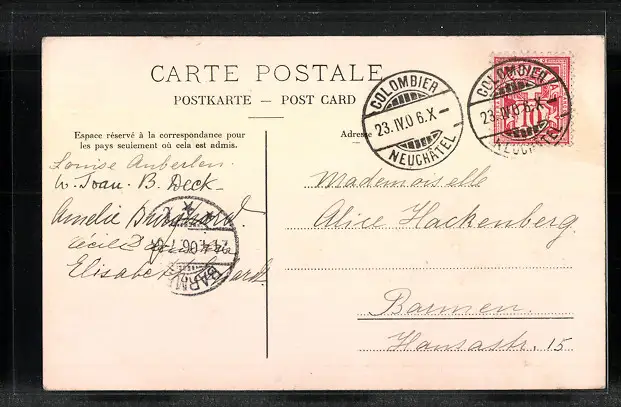 CARTE POSTALE
POSTKARTE — POST CARD
Espace réservé à la correspondance pour
les pays seulement où cela est admis.
Adresse
COLOMBIER
23.IV.06.X—
NEUCHÂTEL
COLOMBIER
23.IV.06.X—
NEUCHÂTEL
10
Louise
B. Deck
Amélie
Cécile
Elisabeth
BARM
Mademoiselle
Alice Hackenberg.
Barmen.
Hansastr. 15